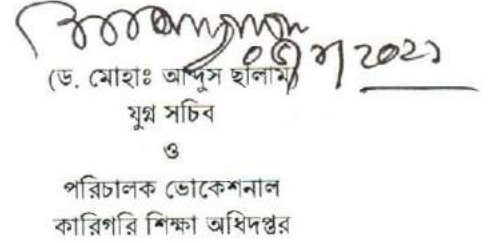 (ড. মোহাঃ আব্দুস ছালাম)
যুগ্ন সচিব
ও
পরিচালক ভোকেশনাল
কারিগরি শিক্ষা অধিদপ্তর